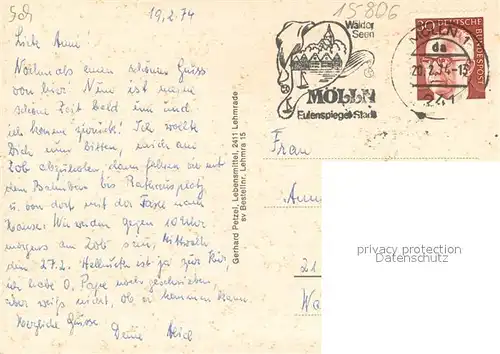 15806
19.2.74
Liebe Anne
Nochmals einen schönen Gruss
von hier. Nun ist unsere
schöne Zeit bald um und
ich komme zurück! Ich wollte
Dich nun bitten, mich am
Zob abzuholen dann fahren wir mit
dem Balnibus bis Rathausplatz
u. von dort mit der Taxe nach
Hause. Wir werden gegen 10 Uhr
morgens am Zob sein, Mittwoch
den 27.2. Hellmuth ist ja zur Kur,
ich habe O. Pape noch geschrieben,
aber weiß nicht, ob er kommen kann.
Herzliche Grüsse
Deine
Gerhard Petzel, Lebensmittel, 2411 Lehmrade
sv Bestellnr. Lehmra 15
Wälder
Seen
MÖLLN
Eulenspiegel-Stadt
MÖLLN 1
da
20.2.74-13
241
30 DEUTSCHE BUNDESPOST
Frau
21
privat copyright
watermark ansichtskarten